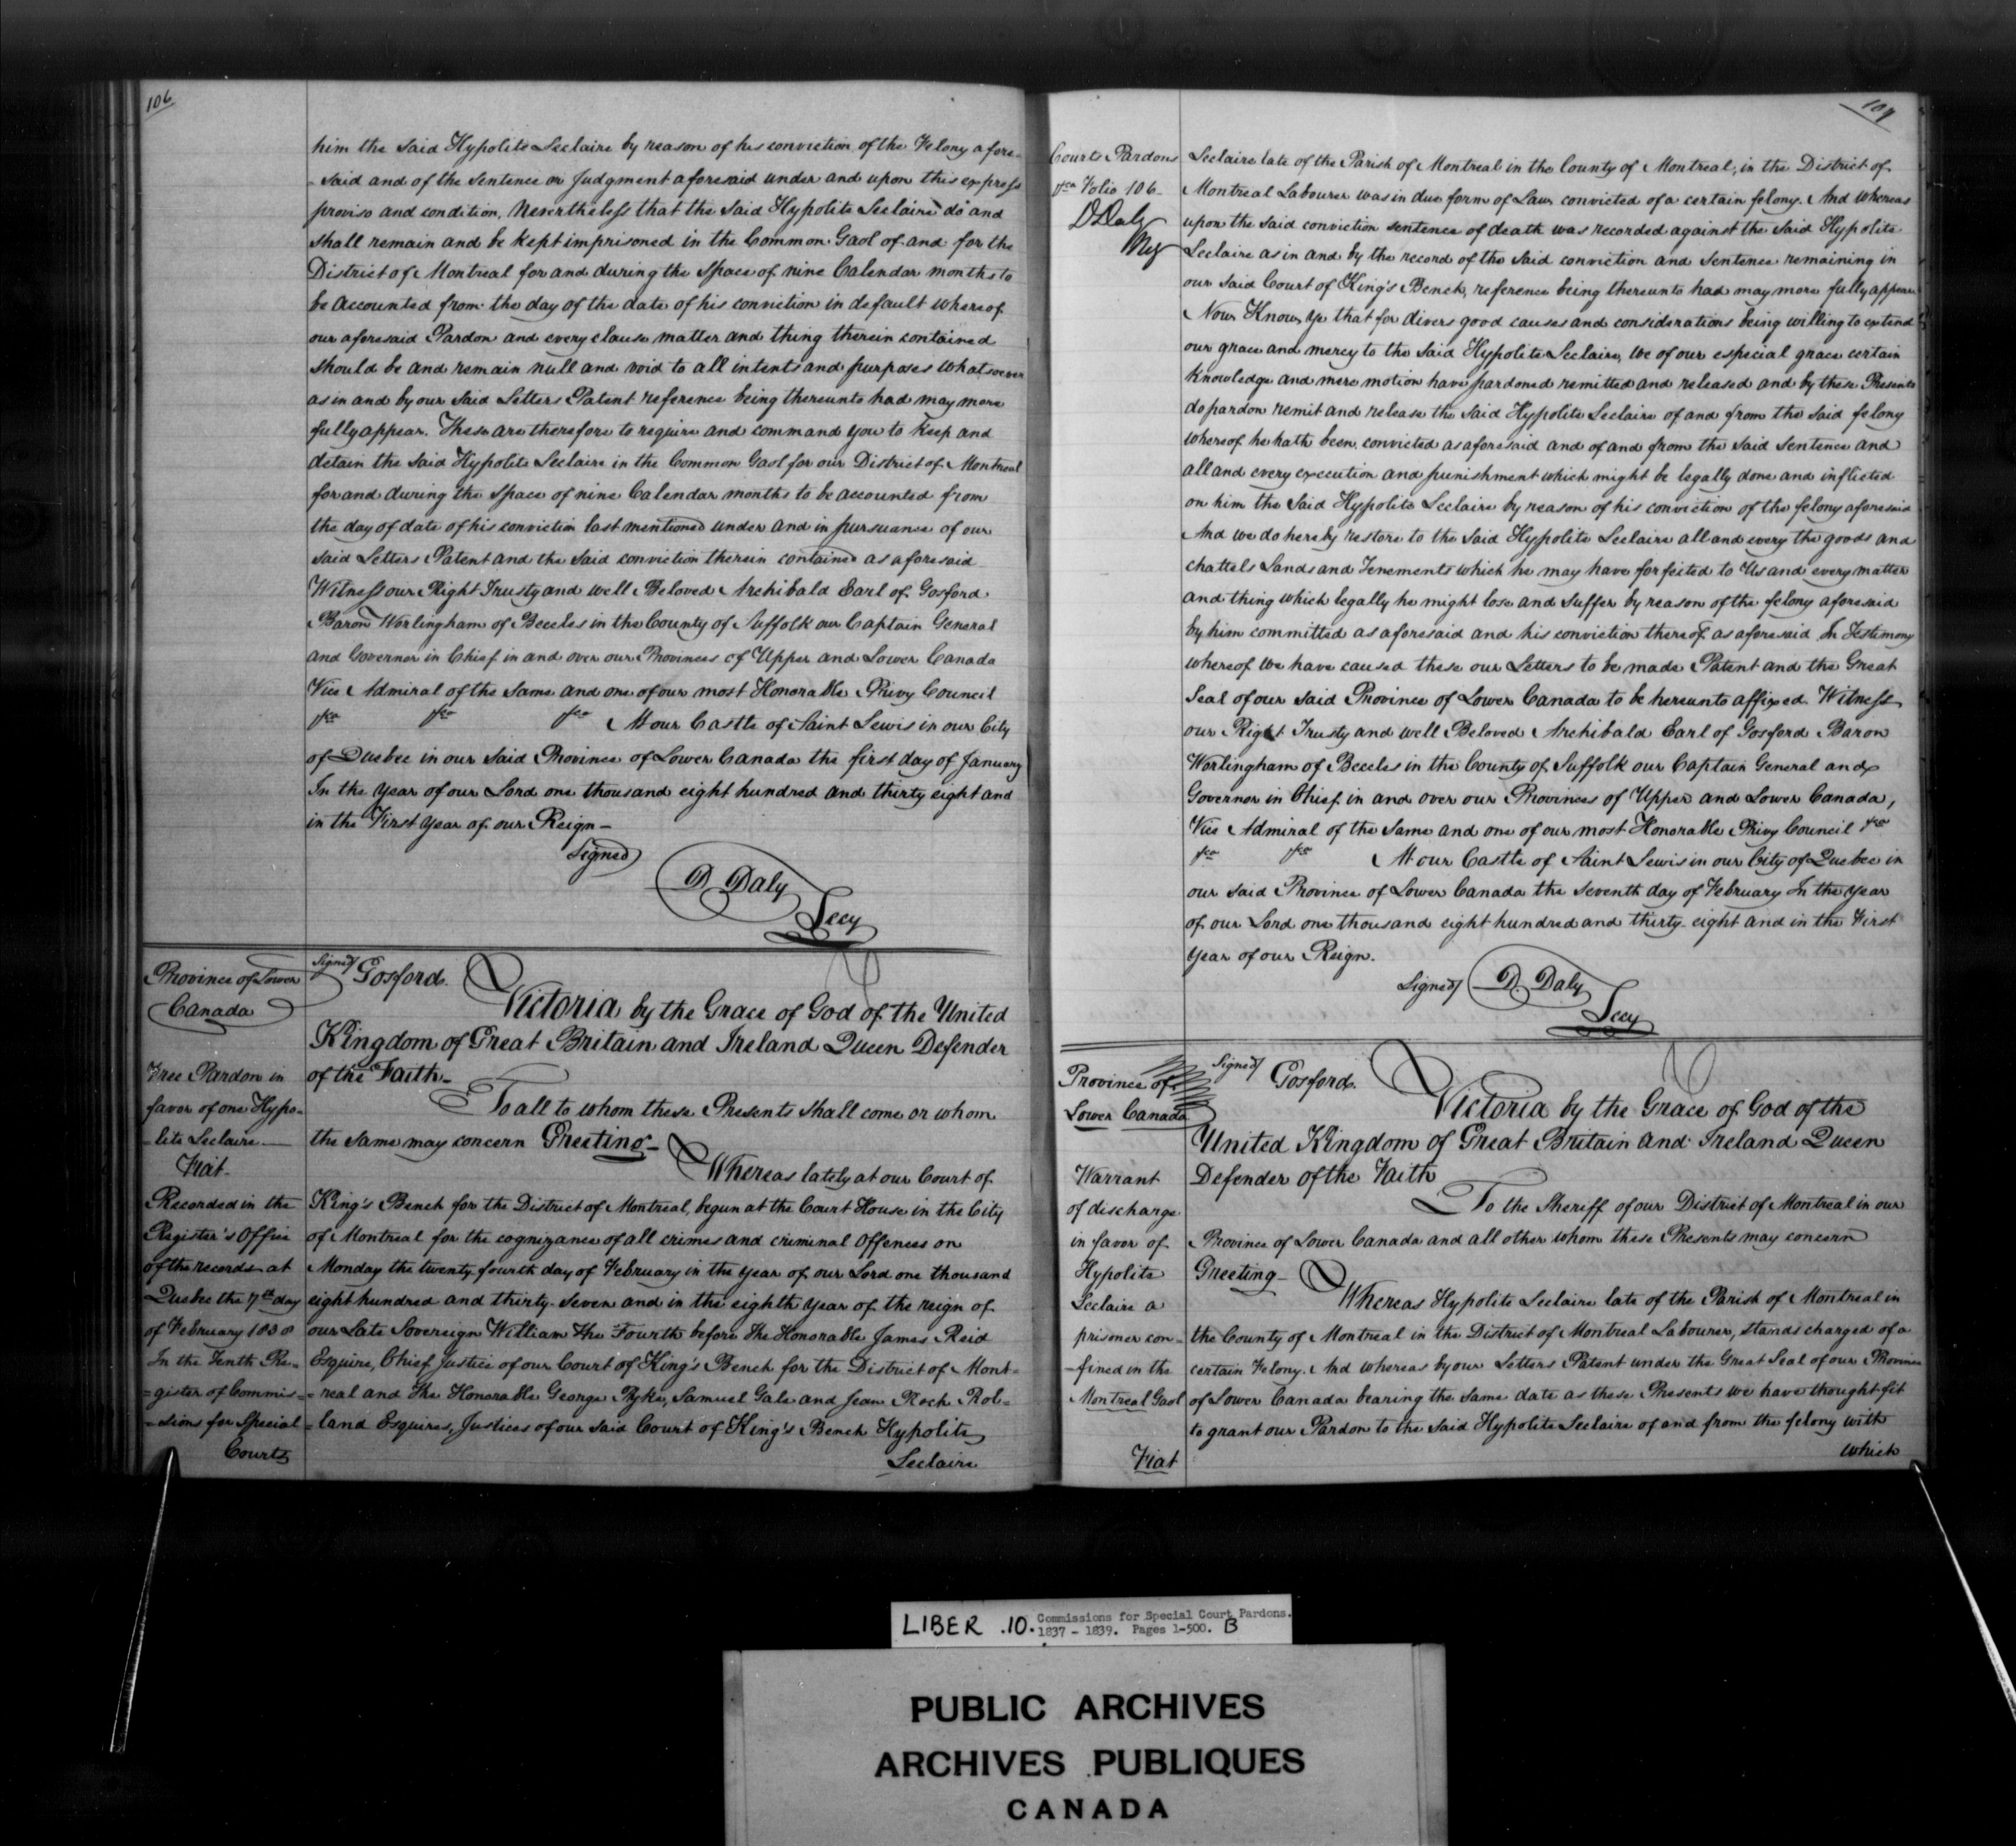 106
him the said Hypolite Leclaire by reason of his conviction of the Felony afore-
-said and of the Sentence or Judgment aforesaid under and upon this express
proviso and condition, Nevertheless that the said Hypolite Leclaire do and
shall remain and be kept imprisoned in the Common Gaol of and for the
District of Montreal for and during the space of nine Calendar months to
be accounted from the day of the date of his conviction in default whereof
our aforesaid Pardon and every clause matter and thing therein contained
should be and remain null and void to all intents and purposes whatsoever
as in and by our said Letters Patent reference being thereunto had may more
fully appear. These are therefore to require and command you to Keep and
detain the said Hypolite Leclaire in the Common Gaol for our District of Montreal
for and during the space of nine Calendar months to be accounted from
the day of date of his conviction last mentioned under and in pursuance of our
said Letters Patent and the said conviction therein contained as aforesaid
Witness our Right Trusty and well Beloved Archibald Earl of Gosford
Baron Worlingham of Beccles in the County of Suffolk our Captain General
and Governor in Chief in and over our Provinces of Upper and Lower Canada
Vice Admiral of the Same and one of our most Honorable Privy Council
&ca &ca &ca At our Castle of Saint Lewis in our City
of Quebec in our said Province of Lower Canada the first day of January
In the year of our Lord one thousand eight hundred and thirty eight and
in the First year of our Reign -
Signed
D. Daly
Secy
Province of Lower
Canada
Free Pardon in
favor of one Hypo-
-lite Leclaire
Fiat
Recorded in the
Register's Office
of the records at
Quebec the 7th day
of February 1838
In the Tenth Re-
=gister of Commis-
=sions for Special
Courts
Signed Gosford.
Victoria by the Grace of God of the United
Kingdom of Great Britain and Ireland Queen Defender
of the Faith-
To all to whom these Presents shall come or whom
the same may concern Greeting-
Whereas lately at our Court of
King's Bench for the District of Montreal, begun at the Court House in the City
of Montreal for the cognizance of all crimes and criminal Offences on
Monday the twenty fourth day of February in the year of our Lord one thousand
eight hundred and thirty-seven and in the eighth year of the reign of
our Late Sovereign William the Fourth before the Honorable James Reid
Esquire, Chief Justice of our Court of King's Bench for the District of Mont-
=real and the Honorable George Pyke, Samuel Gale and Jean Roch Rol=
=land Esquires, Justices of our said Court of King's Bench Hypolite
Leclaire
107
Courts Pardons
&ca Folio 106-
D Daly
Reg
Leclaire late of the Parish of Montreal in the County of Montreal, in the District of
Montreal Labourer was in due form of Law convicted of a certain felony. And whereas
upon the said conviction sentence of death was recorded against the said Hypolite
Leclaire as in and by the record of the said conviction and Sentence remaining in
our said Court of King's Bench, reference being thereunto had may more fully appear
Now Know Ye that for divers good causes and considerations being willing to extend
our grace and mercy to the said Hypolite Leclaire, We of our especial grace certain
knowledge and mere motion have pardoned remitted and released and by these Presents
do pardon remit and release the said Hypolite Leclaire of and from the said felony
whereof he hath been convicted as aforesaid and of and from the said Sentence and
all and every execution and punishment which might be legally done and inflicted
on him the said Hypolite Leclaire by reason of his conviction of the felony aforesaid
And we do hereby restore to the said Hypolite Leclaire all and every the goods and
chattels Lands and Tenements which he may have forfeited to Us and every matter
and thing which legally he might lose and suffer by reason of the felony aforesaid
by him committed as aforesaid and his conviction thereof as aforesaid In Testimony
whereof We have caused these our Letters to be made Patent and the Great
Seal of our said Province of Lower Canada to be hereunto affixed. Witness
our Right Trusty and well Beloved Archibald Earl of Gosford Baron
Worlingham of Beccles in the County of Suffolk our Captain General and
Governor in Chief in and over our Provinces of Upper and Lower Canada,
Vice Admiral of the Same and one of our most Honorable Privy Council &ca
&ca &ca At our Castle of Saint Lewis in our City of Quebec in
our said Province of Lower Canada the seventh day of February In the year
of our Lord one thousand eight hundred and thirty-eight and in the First
year of our Reign.
Signed D. Daly
Secy
Province of
Lower Canada
Warrant
of discharge
in favor of
Hypolite
Leclaire a
prisoner con-
-fined in the
Montreal Gaol
Fiat
Signed Gosford.
Victoria by the Grace of God of the
United Kingdom of Great Britain and Ireland Queen
Defender of the Faith
To the Sheriff of our District of Montreal in our
Province of Lower Canada and all other whom these Presents may concern
Greeting-
Whereas Hypolite Leclaire late of the Parish of Montreal in
the County of Montreal in the District of Montreal Labourer, stands charged of a
certain Felony. And whereas by our Letters Patent under the Great Seal of our Province
of Lower Canada bearing the same date as these Presents we have thought fit
to grant our Pardon to the said Hypolite Leclaire of and from the felony with
which
LIBER .10. Commissions for Special Court Pardons.
1837 - 1839. Pages 1-500. B
PUBLIC ARCHIVES
ARCHIVES PUBLIQUES
CANADA